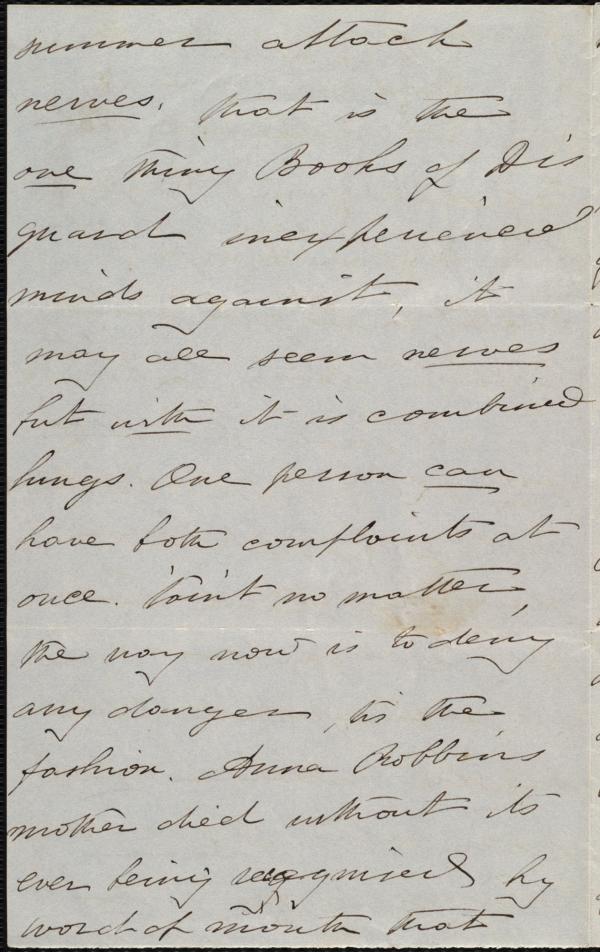 summer attack
nerves. that is the
one thing Books of Dis
guard inexperienced
minds against, it
may all seem nerves
but with it is combined
lungs. One person can
have both complaints at
once. 'taint no matter,
the way now is to deny
any danger, tis the
fashion. Anna Robbins
mother died without its
ever being recognised by
word of mouth that